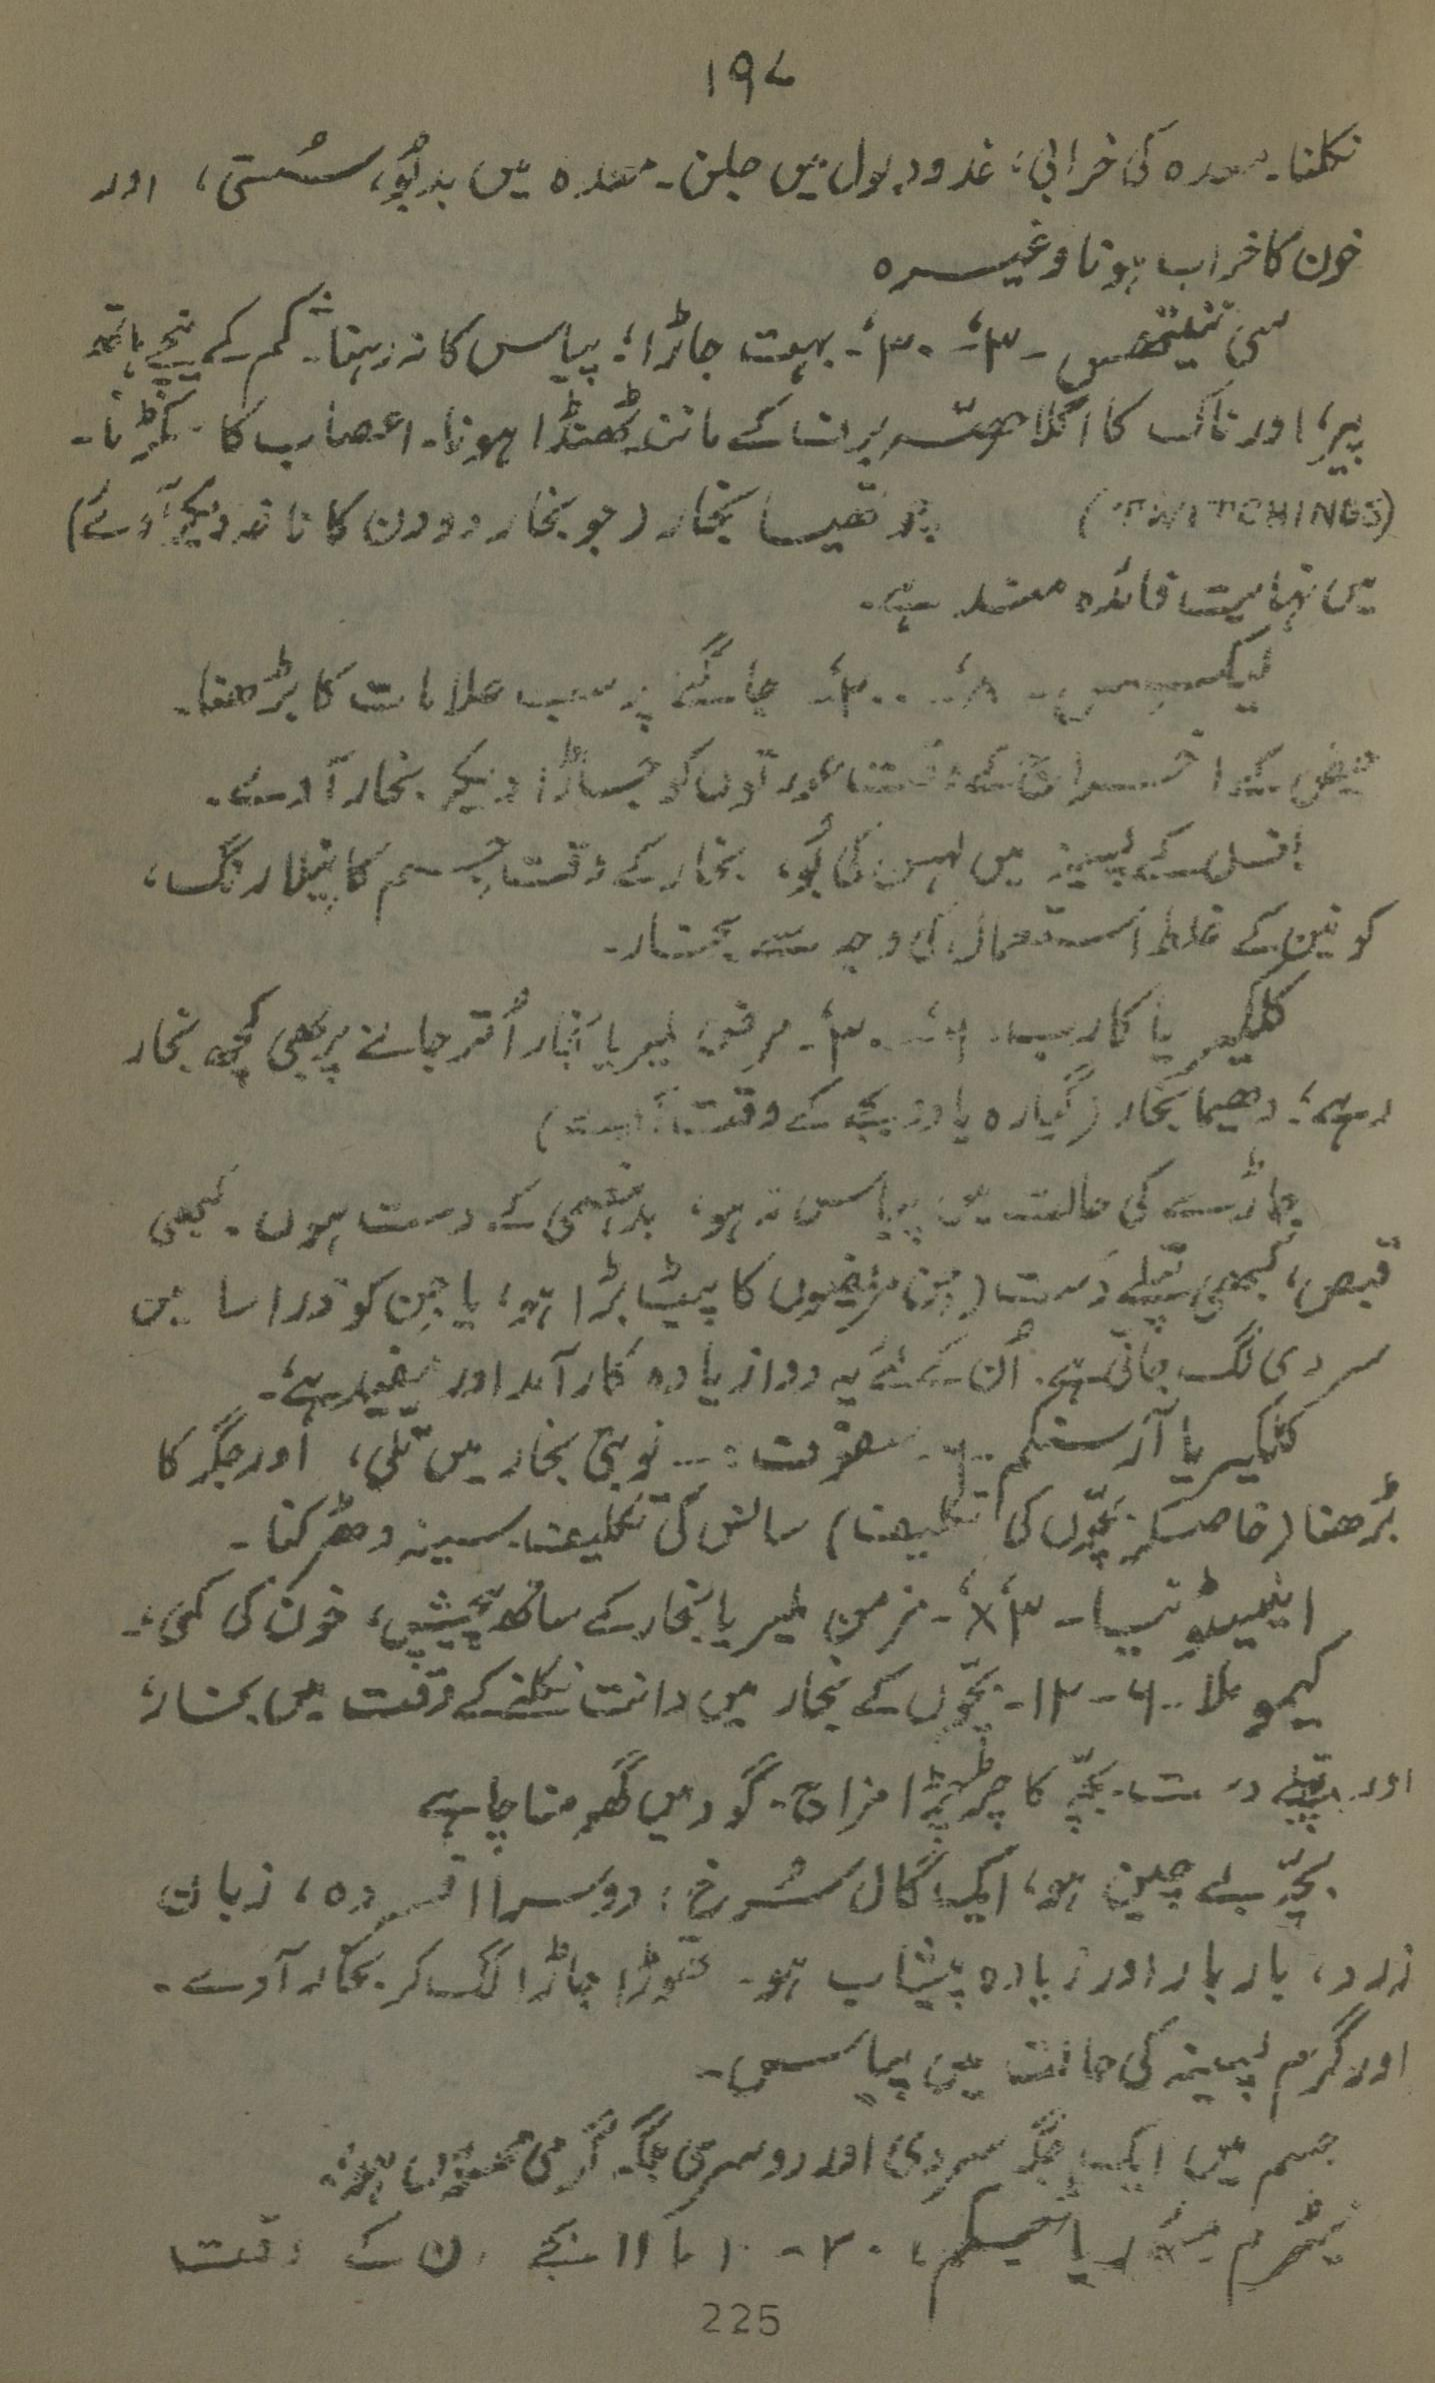 ۱۹۷
نکلنا۔ معدہ کی خرابی، غدود بول میں جلن۔ معدہ میں بدبُو، سُستی، اور
خون کا خراب ہونا وغیرہ
سی ۳۔ ۳۰۔ بہت جاڑا؛ پیاس کا نہ رہنا۔ کے نیچے ہاتھ
پیر، اور ناک کا اگلا حصّہ برف کے مانند ٹھنڈا ہونا۔ اعصاب کا سکڑنا۔
(TWITCHINGS) چوتھیا بخار (جو بخار دو دن کا ناغہ دیکر آوے)
میں نہایت فائدہ مند ہے۔
لیکسس۔ ۸۔ ۲۰۰۔ جاگنے پر سب علامات کا بڑھنا۔
حیض کے اخراج کے وقت عورتوں کو جاڑا دیکر بخار آوے۔
کے پسینہ میں لہسن کی بُو، بخار کے وقت جسم کا پیلا رنگ،
کونین کے غلط استعمال کی وجہ سے بخار۔
کلکیریا کارب۔ ۶۔ ۳۰۔ مرض ملیریا بخار اُتر جانے پر بھی کچھ بخار
رہے؛ دھیما بخار (گیارہ یا دو بجے کے وقت آوے)
جاڑے کی حالت میں پیاس نہ ہو، بدہضمی کے دست ہوں۔ کبھی
قبض، کبھی پتلے دست (جن مریضوں کا پیٹ بڑا ہو، یا جن کو ذرا سا میں
سردی لگ جاتی ہے۔ اُن کے لئے یہ دوا زیادہ کارآمد اور مفید ہے۔
کلکیریا آرسنکم۔ ۶۔ سفوف :۔ نوبتی بخار میں تلی، اور جگر کا
بڑھنا (خاصکر بچّوں کی تکلیف) سانس کی تکلیف۔ سینہ دھڑکنا۔
۳x۔ مزمن ملیریا بخار کے ساتھ پیچش، خون کی کمی۔
کیموملا۔ ۶۔ ۱۲۔ بچّوں کے بخار میں دانت نکلنے کے وقت میں بخار،
اور پتلے دست۔ بچّہ کا چڑچڑا مزاج۔ گود میں گھومنا چاہے
بچّہ بے چین ہو، ایک گال سُرخ؛ دوسرا افسردہ، زبان
زرد، بار بار اور زیادہ پیشاب ہو۔ تھوڑا جاڑا لگ کر بخار آوے۔
اور گرم پسینہ کی حالت میں پیاس۔
جسم میں ایک جگہ سردی اور دوسری جگہ گرمی محسوس ہو۔
نیٹرم میوریاٹیکم، ۲۰۔ ۱۰ یا ۱۱ بجے دن کے وقت
225